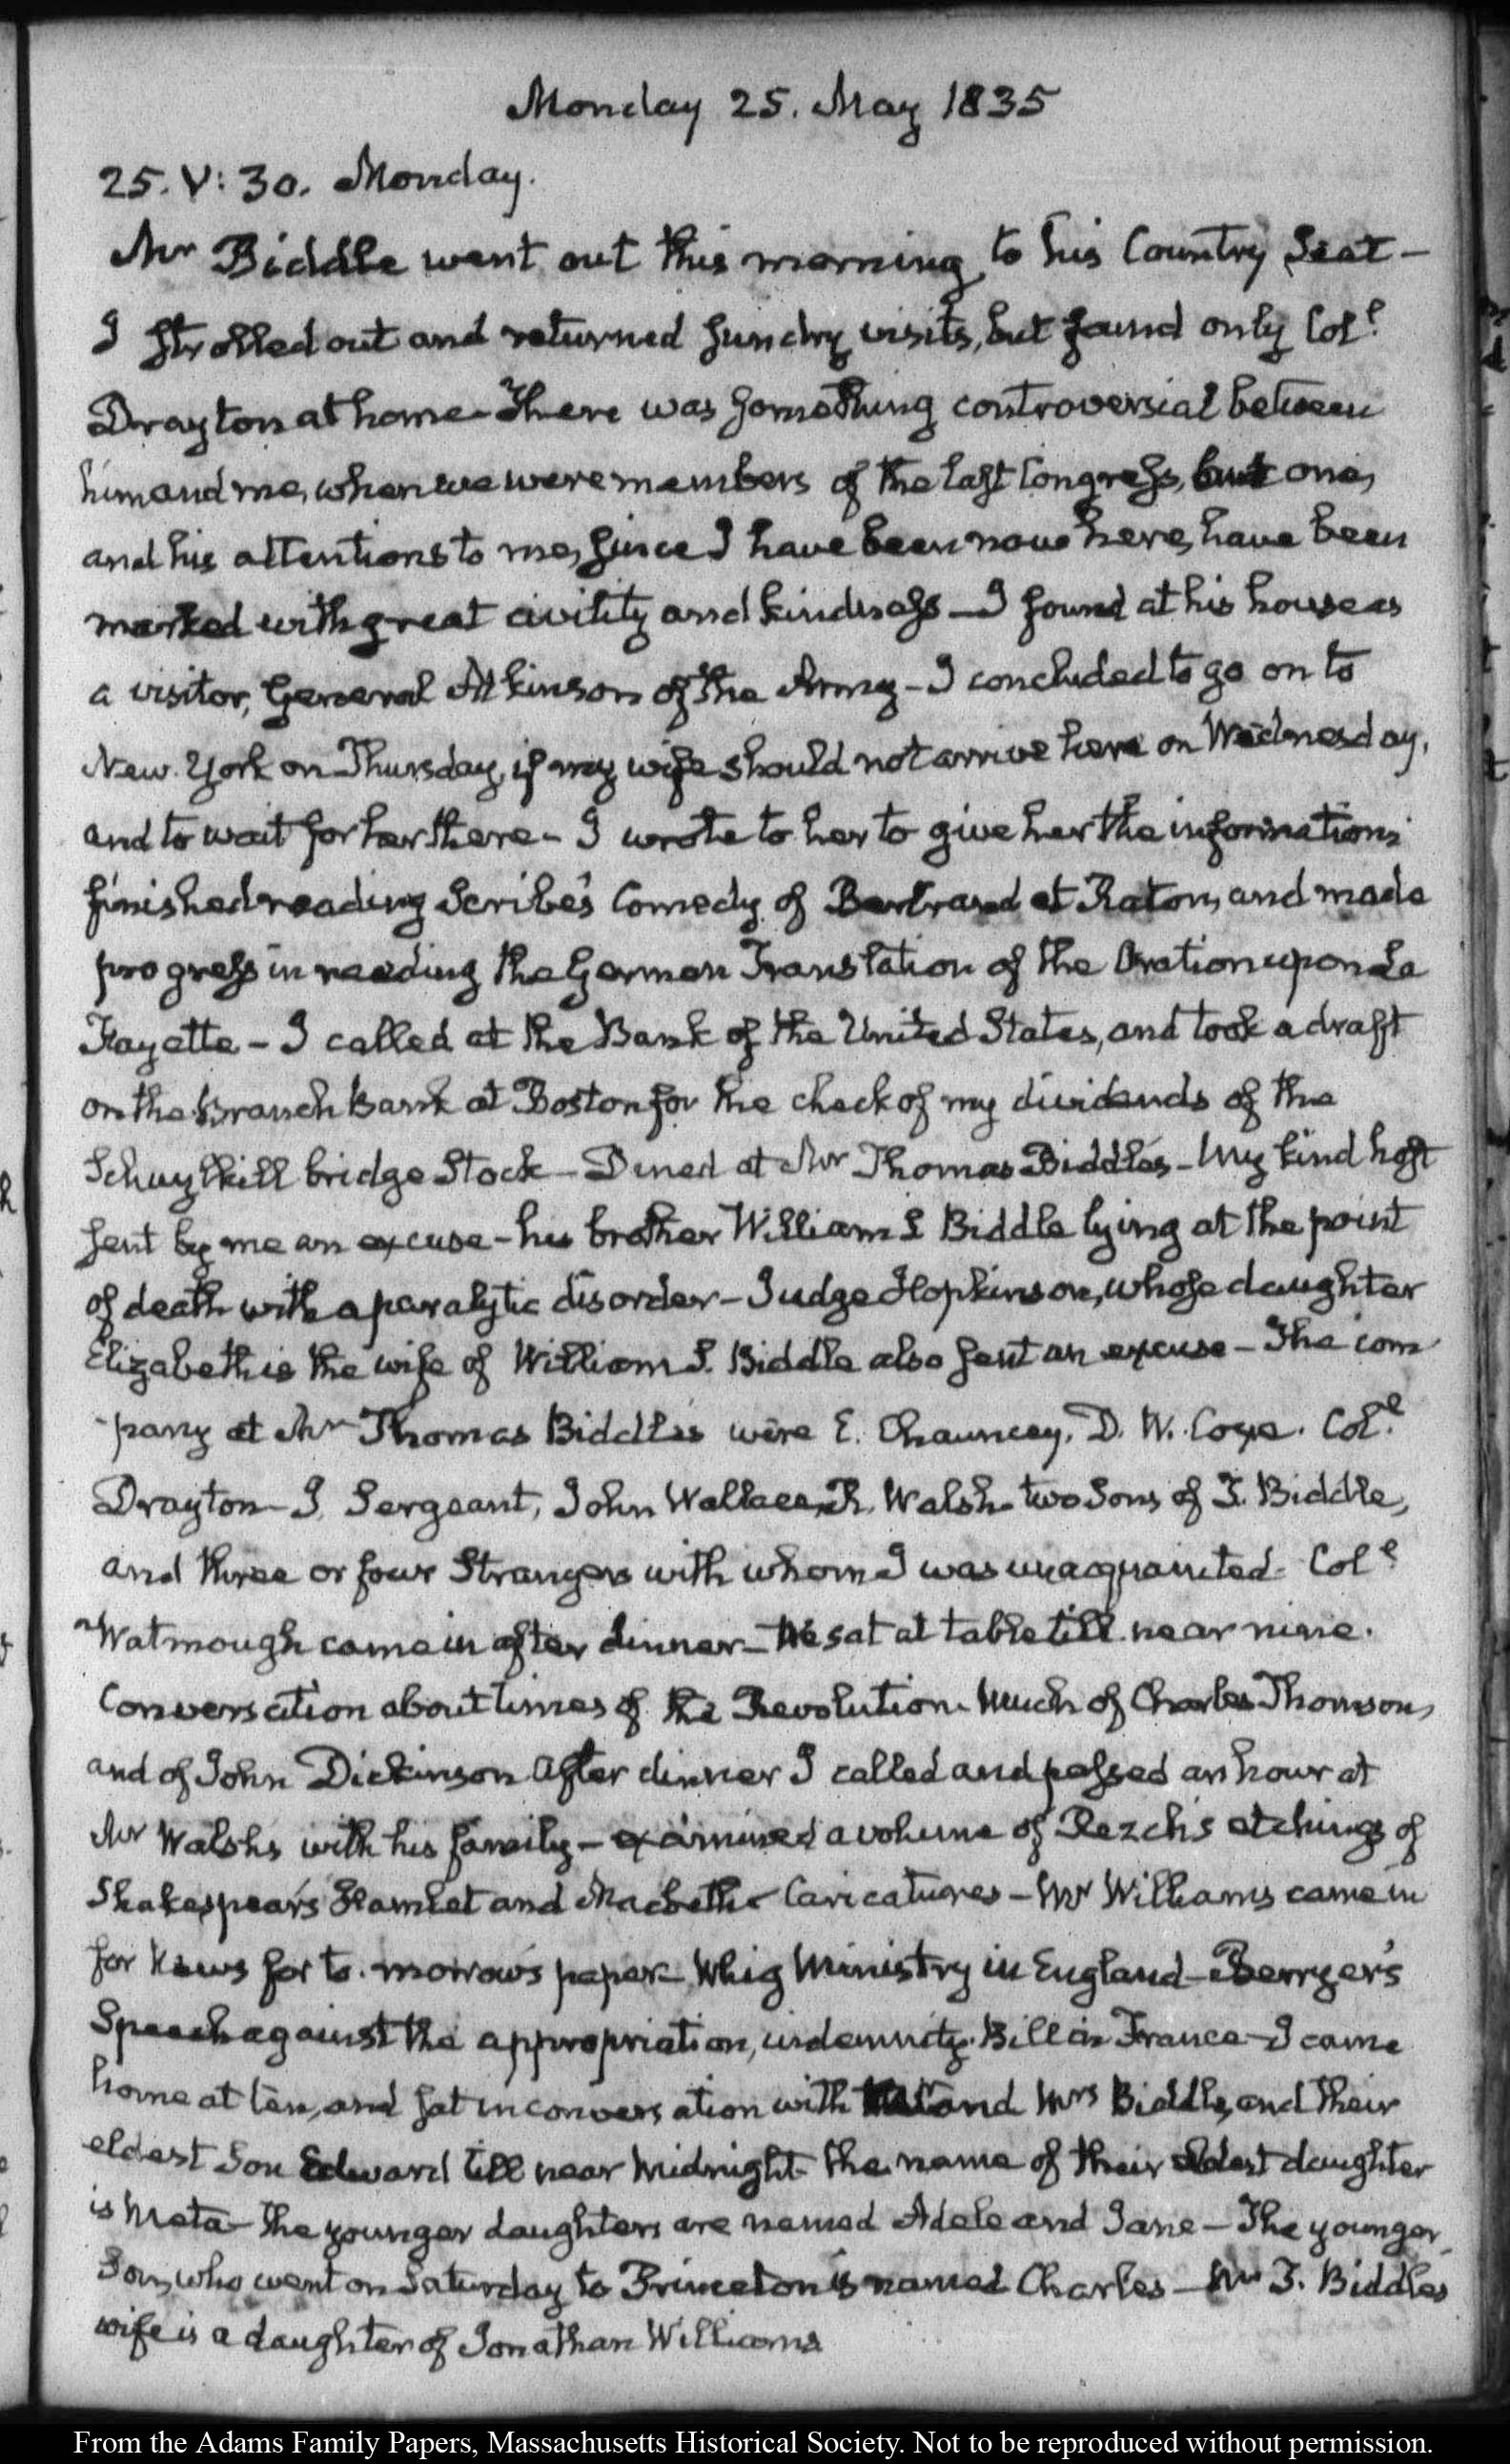 Monday 25. May 1835
25. V: 30. Monday.
Mr Biddle went out this morning to his Country Seat —
I strolled out and returned sundry visits, but found only Col.l
Drayton at home — There was something controversial between
him and me, when we were members of the last Congress, but one,
and his attentions to me, since I have been now here, have been
marked with great civility and kindness — I found at his house as
a visitor, General Atkinson of the Army — I concluded to go on to
New-York on Thursday, if my wife should not arrive here on Wednesday,
and to wait for her there — I wrote to her to give her the information;
finished reading Scribe's Comedy of Bertrand et Raton, and made
progress in reading the German Translation of the Oration upon La
Fayette — I called at the Bank of the United States, and took a draft
on the Branch Bank at Boston for the check of my dividends of the
Schuylkill bridge Stock — Dined at Mr Thomas Biddle's — My kind host
sent by me an excuse — his brother William S Biddle lying at the point
of death with a paralytic disorder — Judge Hopkinson, whose daughter
Elizabeth is the wife of William S. Biddle also sent an excuse — The com
-pany at Mr Thomas Biddle's were E. Chauncey, D. W. Coxe. Col.l
Drayton — J. Sergeant, John Wallace, R. Walsh two Sons of T. Biddle,
and three or four Strangers with whom I was unacquainted. Col.l
Watmough came in after dinner — We sat at table till near nine.
Conversation about times of the Revolution. Much of Charles Thomson,
and of John Dickinson After dinner I called and passed an hour at
Mr Walsh's with his family — examined a volume of Rezch's etchings of
Shakespear's Hamlet and Macbeth — Caricatures — Mr Williams came in
for News for to-morrow's paper — Whig Ministry in England — Berryer's
Speech against the appropriation, indemnity Bill in France — I came
home at ten, and sat in conversation with and Mrs Biddle, and their
eldest Son Edward till near Midnight — The name of their eldest daughter
is Meta — The younger daughters are named Adele and Jane — The younger
Son, who went on Saturday to Princeton is named Charles — Mr T. Biddle's
wife is a daughter of Jonathan Williams
From the Adams Family Papers, Massachusetts Historical Society. Not to be reproduced without permission.